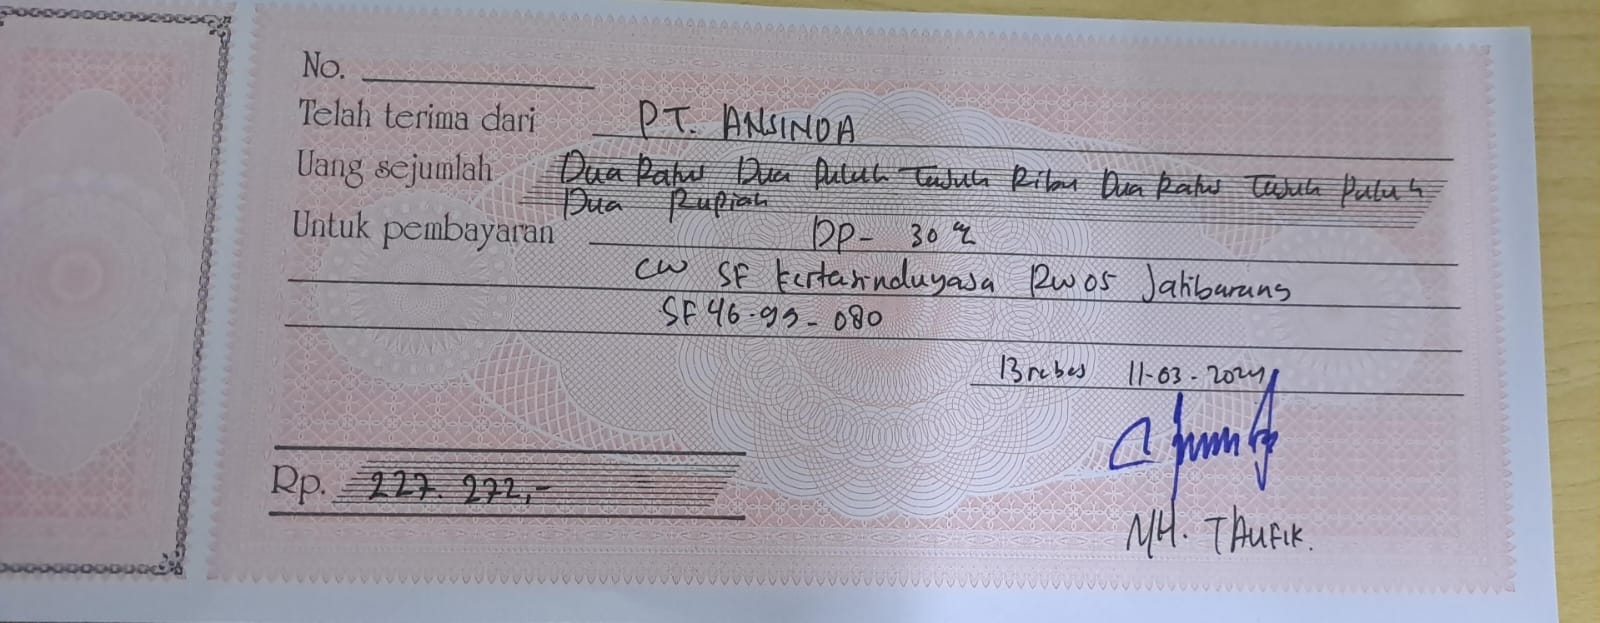 No.
Telah terima dari PT. ANSINDA
Uang sejumlah Dua Ratus Dua Puluh Tujuh Ribu Dua Ratus Tujuh Puluh
Dua Rupiah
Untuk pembayaran DP- 30%
CW SF Kertasinduyasa RW 05 Jatibarang
SF 46-99-080
Brebes 11-03-2024
Rp. 227.272,-
MH. TAUFIK.